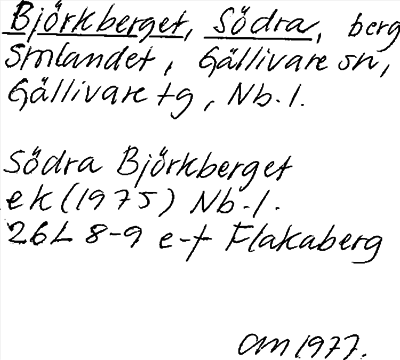 Björkberget, Södra, berg
Smlandet, Gällivare sn,
Gällivare tg, Nb.l.
Södra Björkberget
ek (1975) Nb.l.
26L 8-9 e-f Flakaberg
AM 1977.